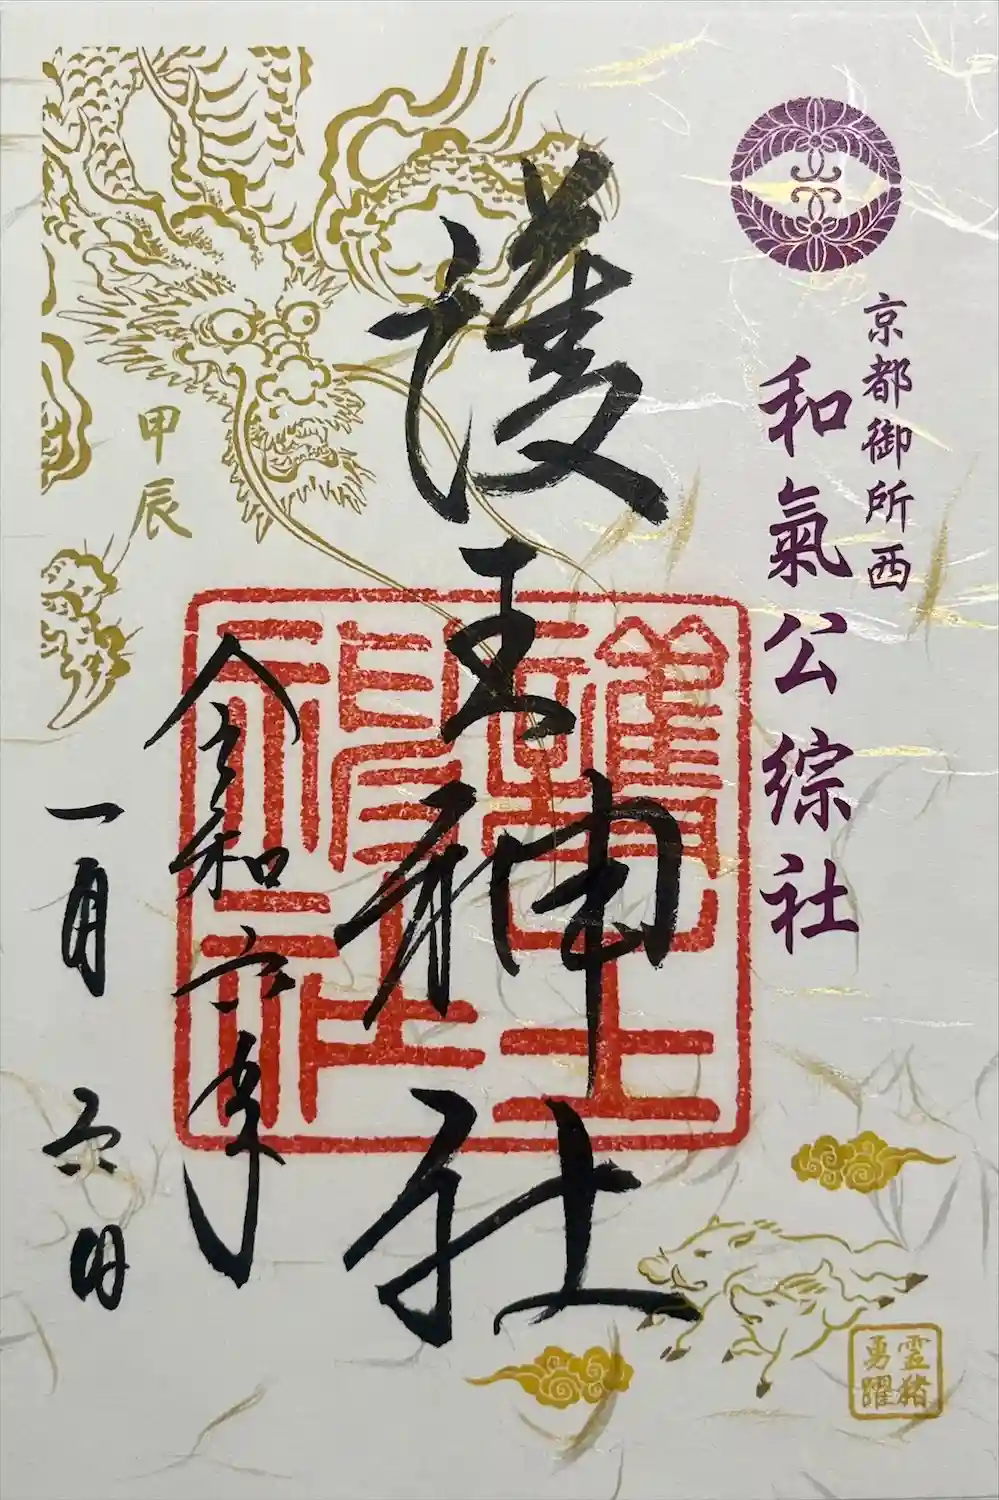 京都御所西
和氣公綜社
護王神社
令和六年
一月六日
甲辰
霊猪
勇躍
護王
神社